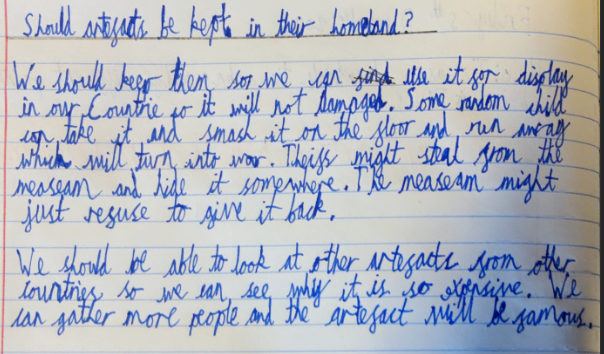 Should artefacts be kept in their homeland?
We should keep them so we can find use it for display
in our Countrie so it will not damaged. Some random child
can take it and smash it on the floor and run away
which will turn into war. Theifs might steal from the
measeam and hide it somewhere. The measeam might
just refuse to give it back.
We should be able to look at other artefacts from other
countries so we can see why it is so expensive. We
can gather more people and the artefact will be famous.